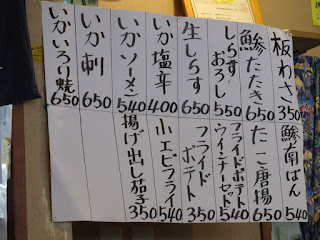 板わさ 350
鯵たたき 650
しらすおろし 550
生しらす 650
いか塩辛 400
いかソーメン 540
いか刺 650
いかいろり焼 650
鯵南ばん 540
たこ唐揚 650
フライドポテトウインナーセット 540
フライドポテト 350
小エビフライ 540
揚げ出し茄子 350